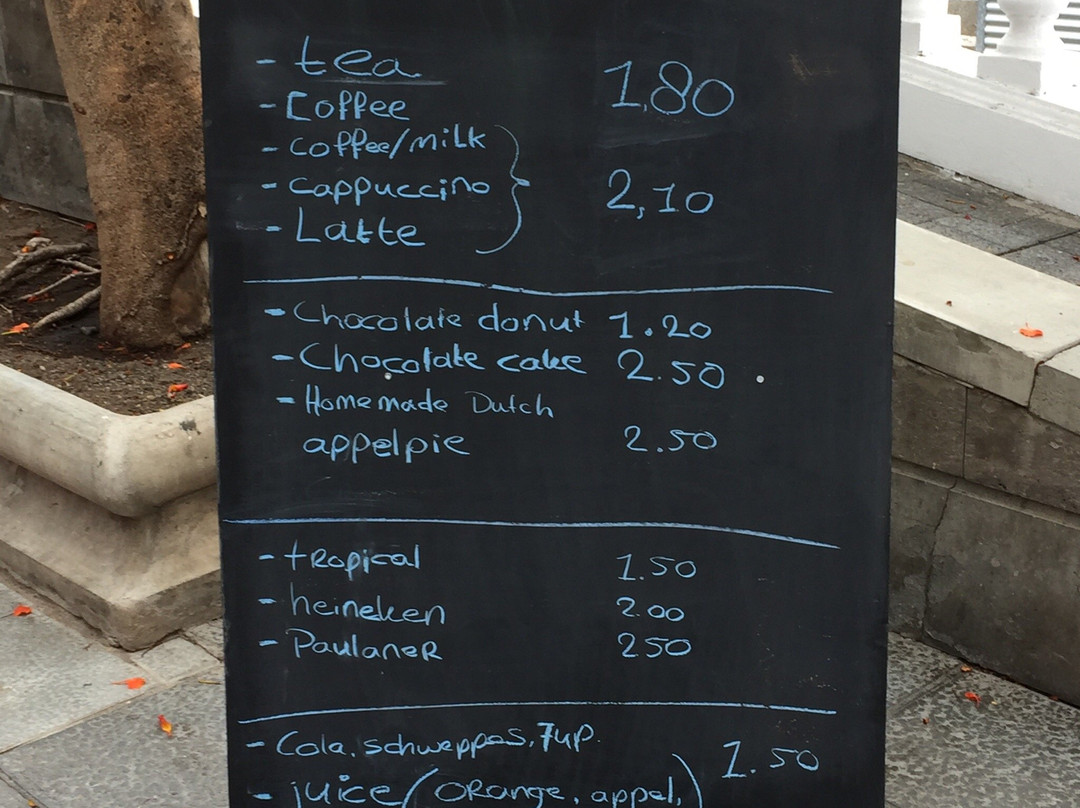 - tea
- Coffee 1,80
- coffee/milk
- cappuccino 2,10
- Latte
- Chocolate donut 1.20
- Chocolate cake 2.50
- Homemade Dutch
appelpie 2.50
- tropical 1.50
- heineken 2.00
- Paulaner 2.50
- Cola, schweppes, 7up.
- juice (orange, appel,) 1.50